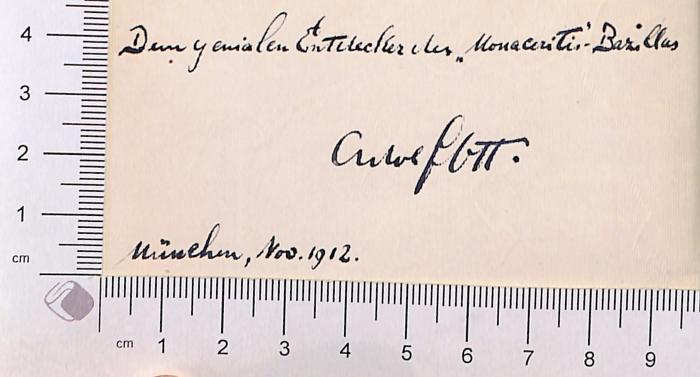 4
Dem genialen Entdecker des „Monaceritis"-Bazillus
3
2
Adolf Ott.
1
München, Nov. 1912.
cm
cm 1 2 3 4 5 6 7 8 9